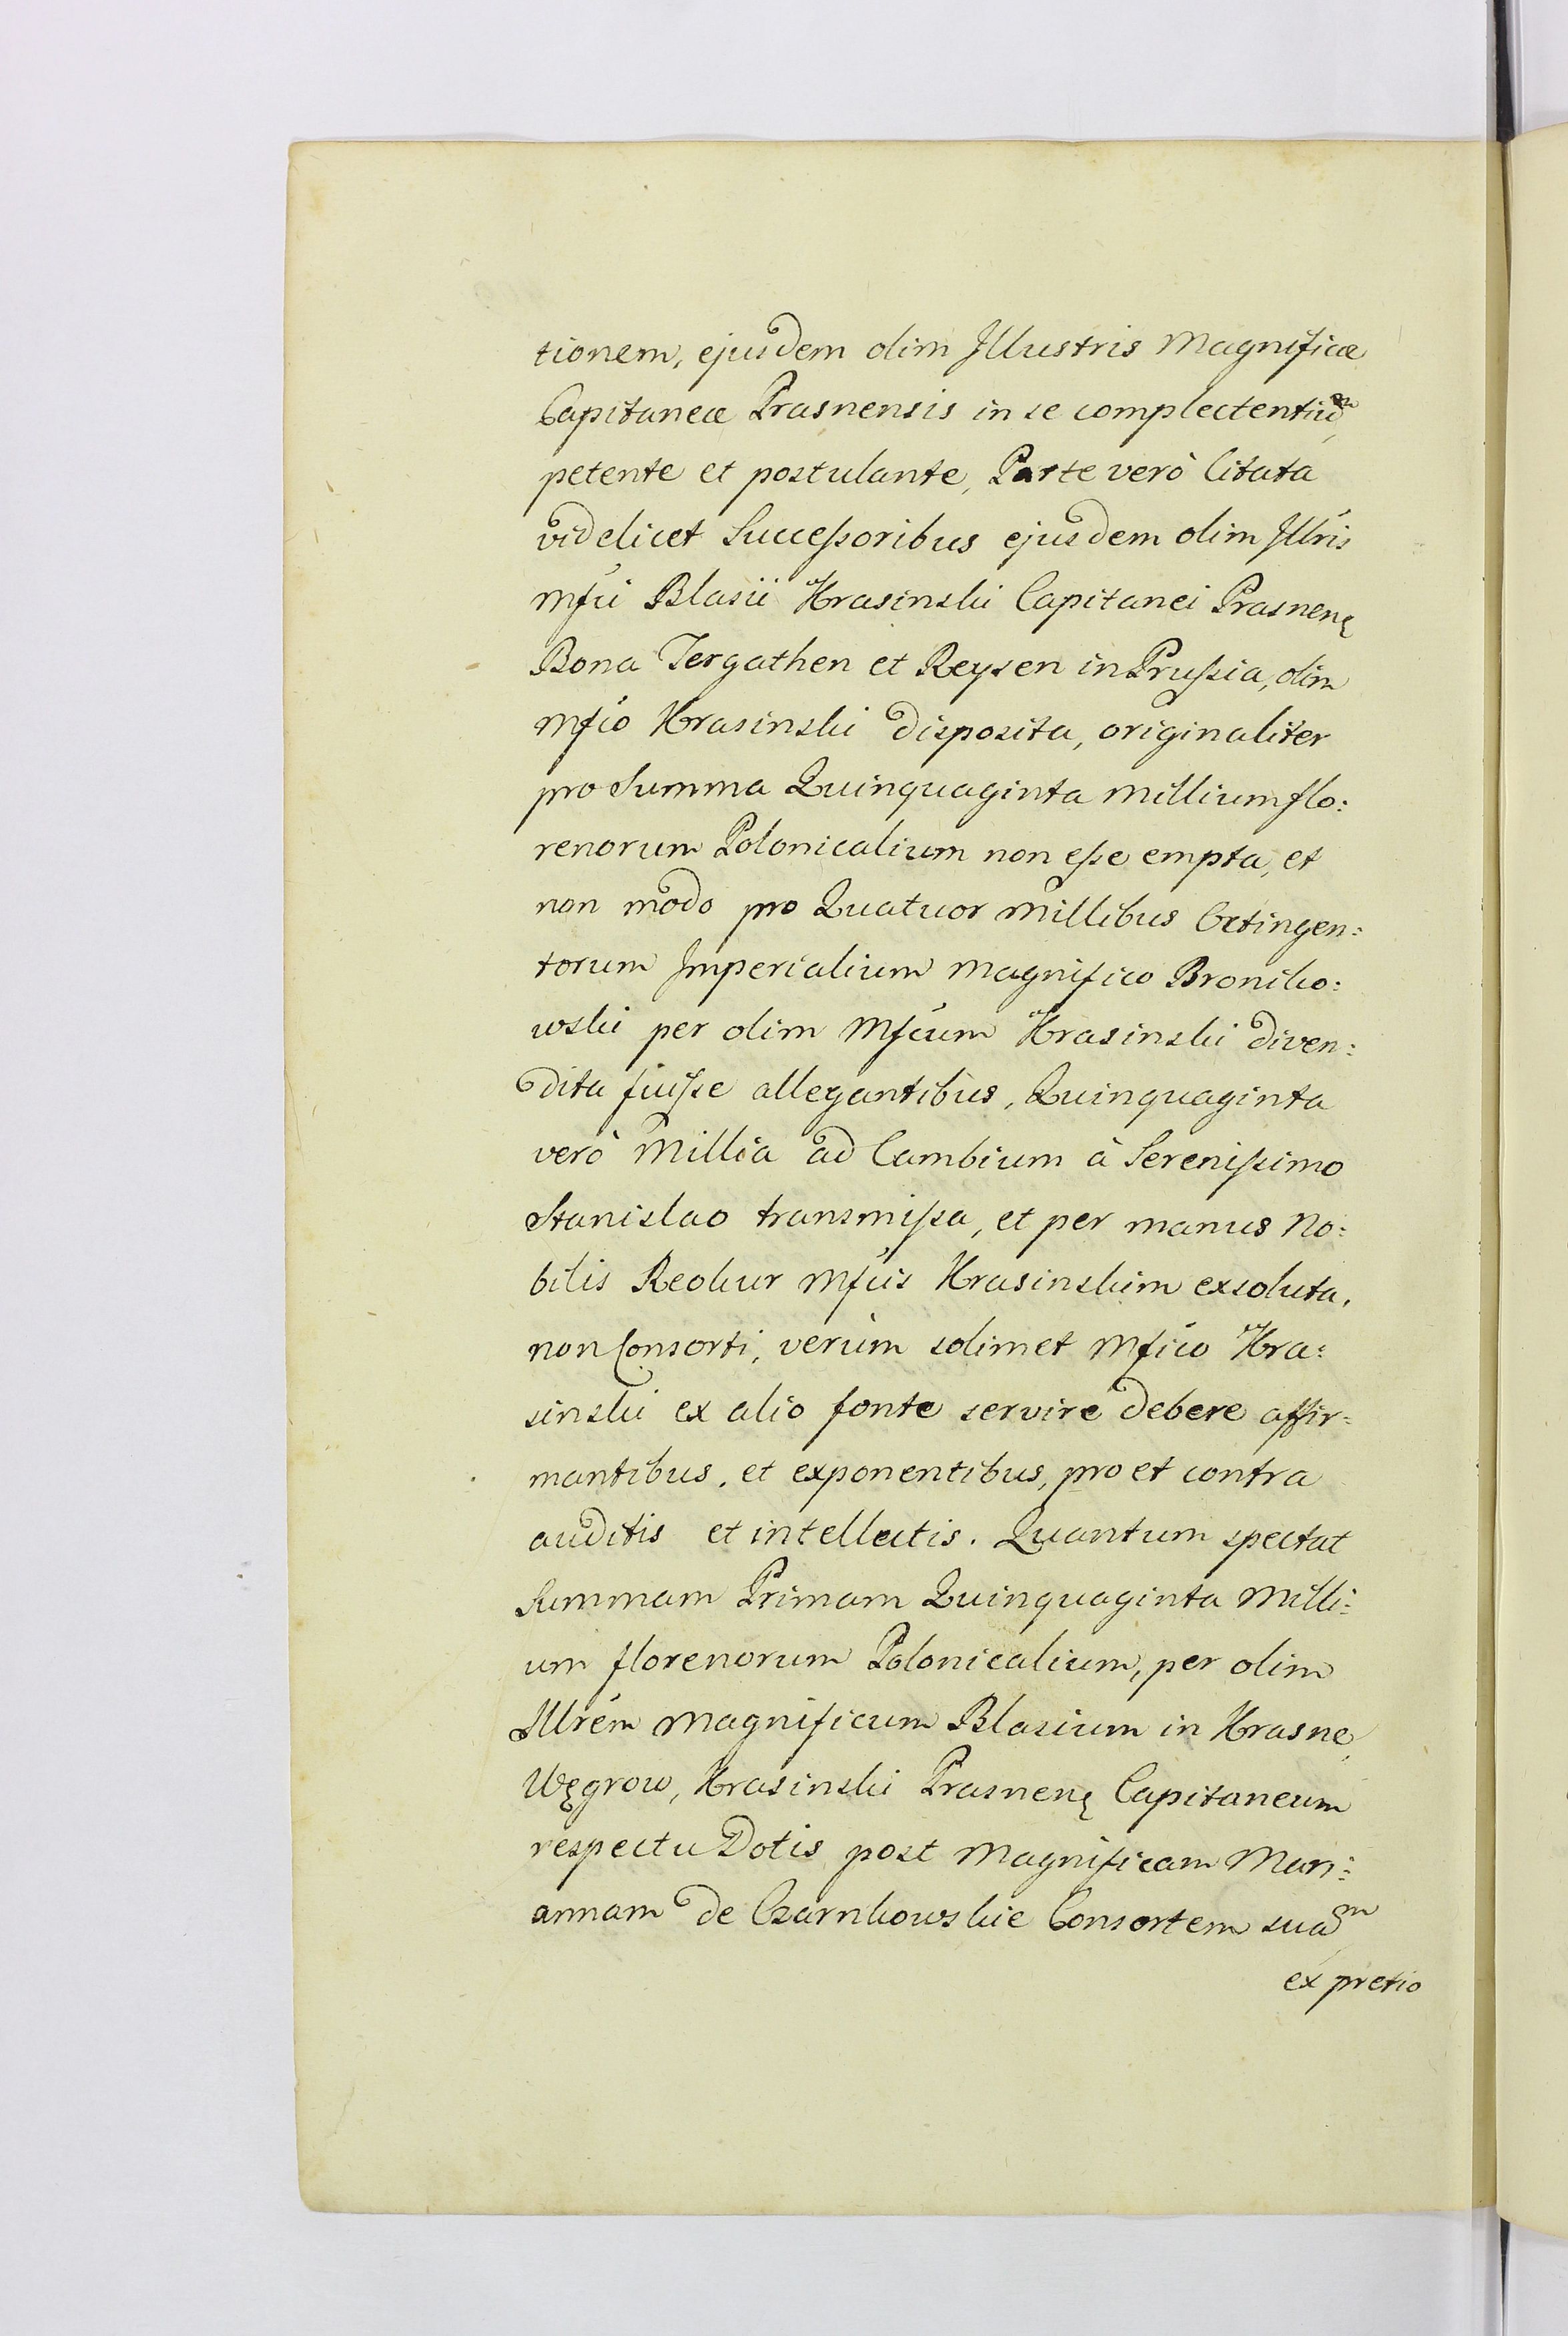 tionem, ejusdem olim Illustris Magnificæ
Capitaneæ Prasnensis in se complectentium
petente et postulante, Parte verò Citata
videlicet Succeſsoribus ejusdem olim Illris
Mfci Blasii Krasinski Capitanei Prasnenę
Bona Tergathen et Reysen in Pruſsia, olim
Mfco Krasinski disposita, originaliter
pro Summa Quinquaginta Millium flo:
renorum Polonicalium non eſse empta, et
non modo pro Quatuor Millibus Octingen:
torum Imperialium Magnifico Broniko:
wski per olim Mfcum Krasinski diven:
dita fuiſse allegantibus, Quinquaginta
verò Millia ad Cambium à Sereniſsimo
Stanislao transmiſsa, et per manus No:
bilis Reokur Mfcis Krasinskim exsoluta,
non Consorti, verùm solimet Mfico Kra:
sinski ex alio fonte servire debere affir:
mantibus, et exponentibus, pro et contra
auditis et intellectis. Quantum spectat
Summam Primam Quinquaginta Milli:
um florenorum Polonicalium, per olim
Illrem Magnificum Blasium in Krasne,
Węgrow, Krasinski Prasnenę Capitaneum
respectu Dotis post Magnificam Mari:
annam de Czarnkowskie Consortem suam
ex pretio